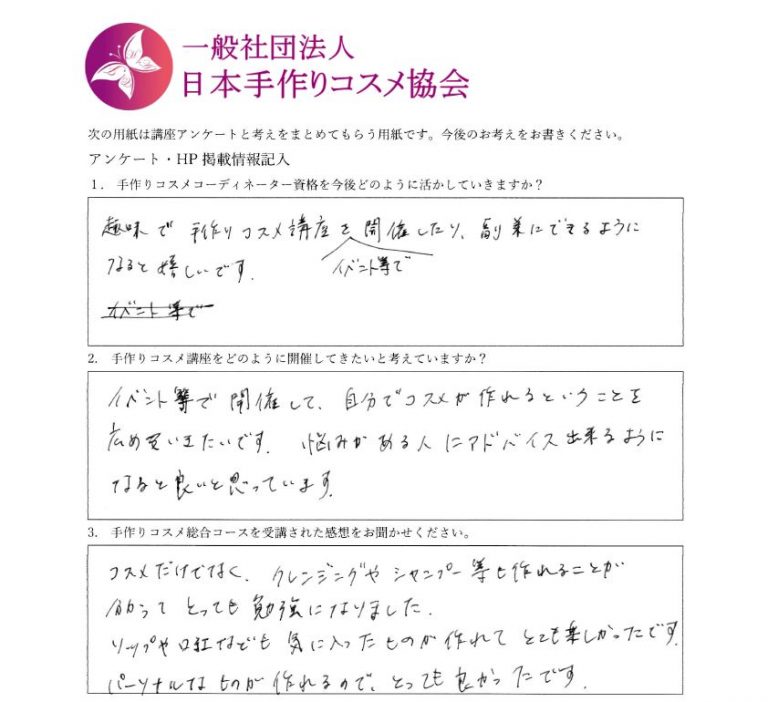 一般社団法人
日本手作りコスメ協会
次の用紙は講座アンケートと考えをまとめてもらう用紙です。今後のお考えをお書きください。
アンケート・HP 掲載情報記入
1. 手作りコスメコーディネーター資格を今後どのように活かしていきますか?
趣味で 手作りコスメ講座を 開催したり、副業にできるように
イベント等で
なると嬉しいです。
イベント等で
2. 手作りコスメ講座をどのように開催してきたいと考えていますか?
イベント等で 開催して、自分でコスメが作れるということを
広めていきたいです。悩みがある人にアドバイス出来るように
なると良いと思っています。
3. 手作りコスメ総合コースを受講された感想をお聞かせください。
コスメだけでなく、クレンジングや シャンプー等も作れることが
分かって とっても勉強になりました。
リップや口紅なども 気に入ったものが作れて とても楽しかったです。
パーソナルなものが作れるので、とっても良かったです。